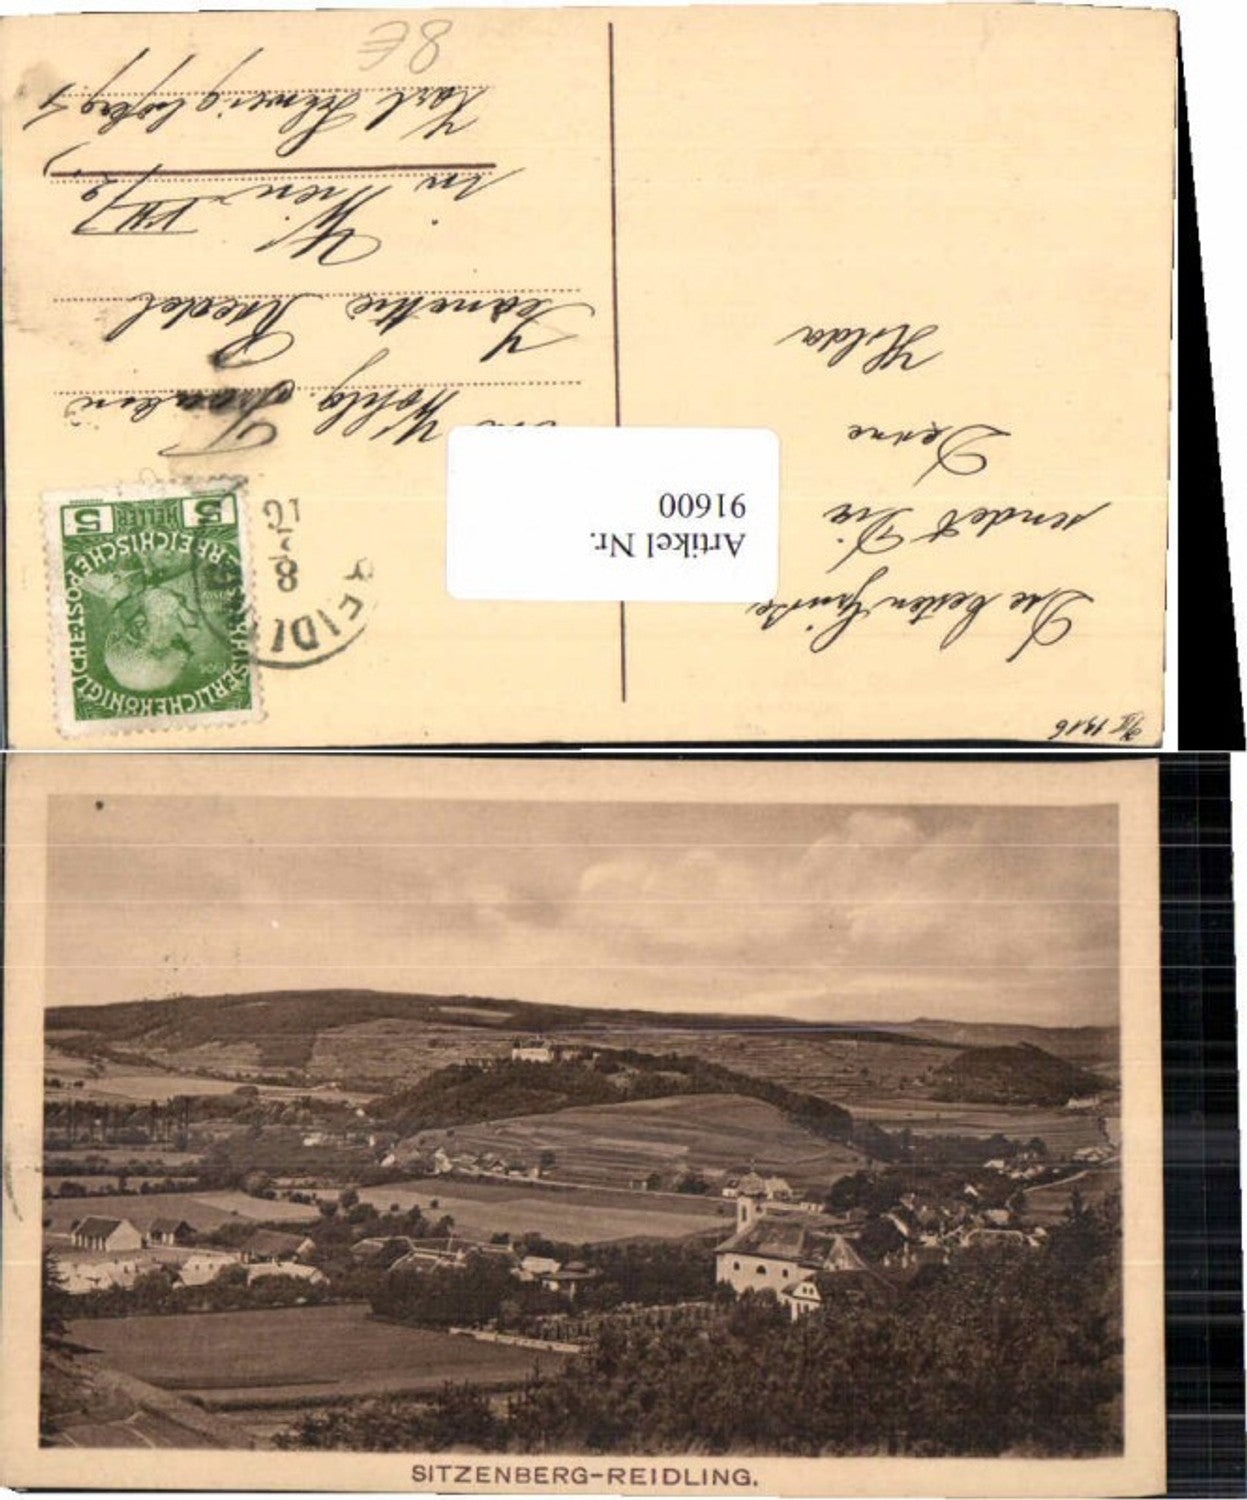 9/II 1916
Die besten Grüße
sendet Dir
Deine
Hilda
Artikel Nr.
91600
REIDL
8
16
KAISERLICHE KÖNIGLICHE ÖSTERREICHISCHE POST
1908
5 HELLER 5
Wohlg. Fräulein
Jeanette Riedel
in Wien VII/2,
Karl
8€
SITZENBERG-REIDLING.